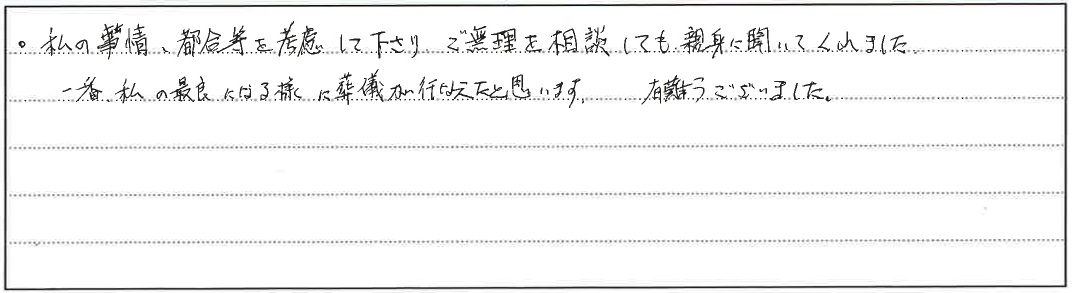 。私の事情、都合等を考慮して下さり、ご無理を相談しても、親身に聞いてくれました。
一番、私の最良になる様に葬儀が行なえたと思います。 有難うございました。